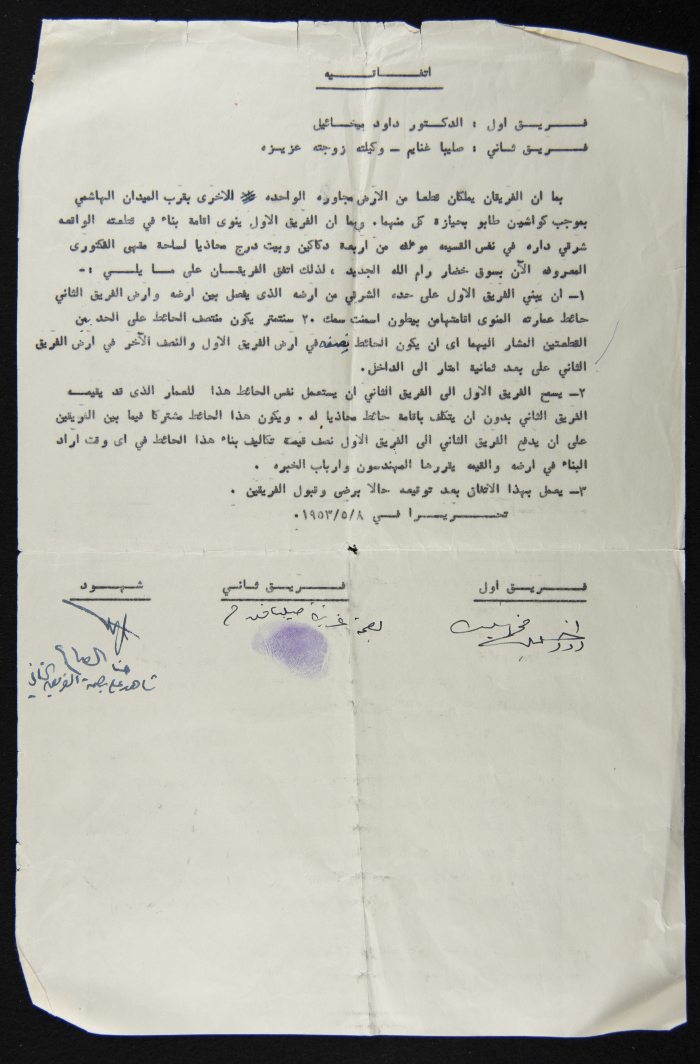 اتفـــاقـــيه
فـــريـــق اول : الدكـتور داود ميخـــائيل
فـــريـــق ثـاني : صليبا غنايم ــ وكيلته زوجته عزيـزه
بما ان الفريقان يملكان قطعا من الارض مجاوره الواحده الاخرى بقرب الميدان الهاشمي
بموجب كواشين طابو بحيازة كل منهما. وبما ان الفريق الاول ينوى اقامة بناء في قطعته الواقعه
شرقي داره في نفس القسيمه موءلفه من اربعة دكاكين وبيت درج محاذيا لساحة مقهى الفكتورى
المعروفه الآن بسوق خضار رام الله الجديد ، لذلك اتفق الفريقـــان على مـــا يلـــي :ـ
١ــ ان يبني الفريق الاول على حده الشرقي من ارضه الذى يفصل بين ارضه وارض الفريق الثاني
حائط عمارته المنوى اقامتها من بيطون اسمنت سمك ٢٠ سنتمتر يكون منتصف الحائط على الحد بين
القطعتين المشار اليهما اى ان يكون الحائط نصفه في ارض الفريق الاول والنصف الآخر في ارض الفريق
الثاني على بعد ثمانية امتار الى الداخل.
٢ــ يسمح الفريق الاول الى الفريق الثاني ان يستعمل نفس الحائط هذا للعمار الذى قد يقيمـــه
الفريق الثاني بدون ان يتكلف باقامة حائط محاذيا له . ويكون هذا الحائط مشتركا فيما بين الفريقين
على ان يدفع الفريق الثاني الى الفريق الاول نصف قيمة تكاليف بناء هذا الحائط في اى وقت اراد
البناء في ارضه والقيمه يقررها المهندسون وارباب الخبره .
٣ــ يعمل بهذا الاتفاق بعد توقيعه حالا برضى وقبول الفريقين .
تحـــريـــرا فـــي ١٩٥٣/٥/٨.
فـــريـــق اول
فـــريـــق ثـاني
شهـــود
بصمة عزيزة صليبا غنايم
حنا
شاهد على بصمة الفريق الثاني